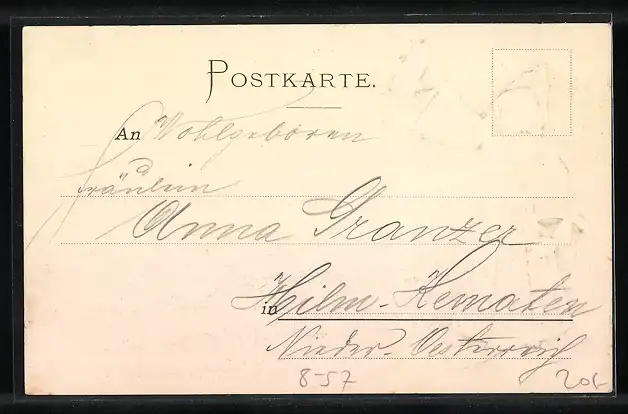 POSTKARTE.
An Wohlgeboren
Fräulein
Anna Granzer
in Hilm-Kematen
Nieder-Oesterreich
8-57 20.-